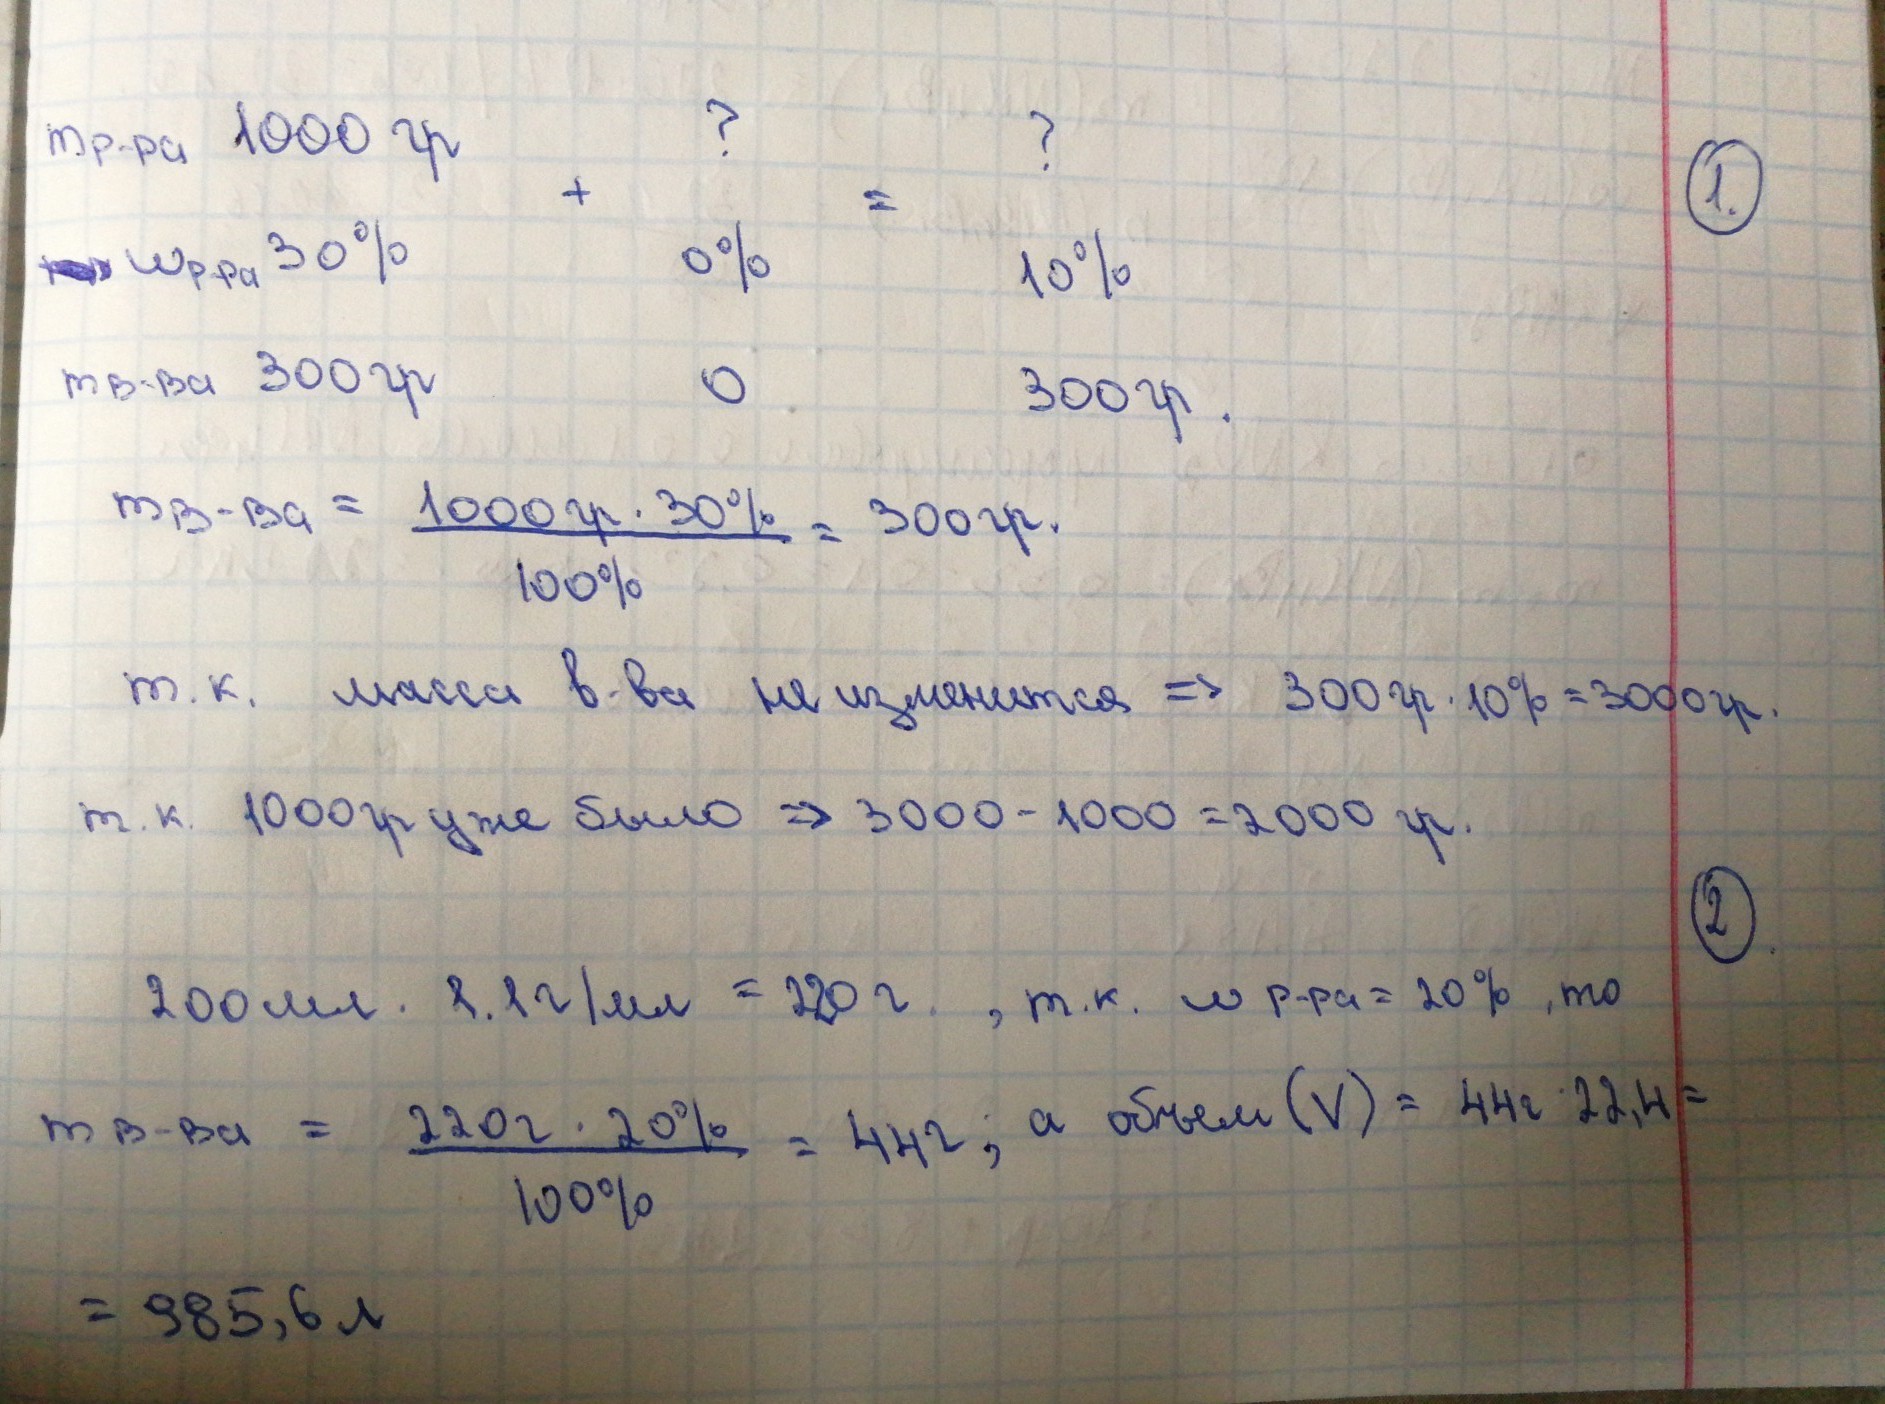 mр-ра 1000 гр + ? = ?
1.
wр-ра 30% 0% 10%
mв-ва 300гр 0 300гр.
mв-ва = 1000гр · 30% / 100% = 300гр.
т.к. масса в-ва не изменится => 300гр · 10% = 3000гр.
т.к. 1000гр уже было => 3000 - 1000 = 2000 гр.
2.
200мл · 1.1г/мл = 220г. , т.к. w р-ра = 20% , то
m в-ва = 220г · 20% / 100% = 44г; а объем (V) = 44г · 22,4 =
= 985,6 л